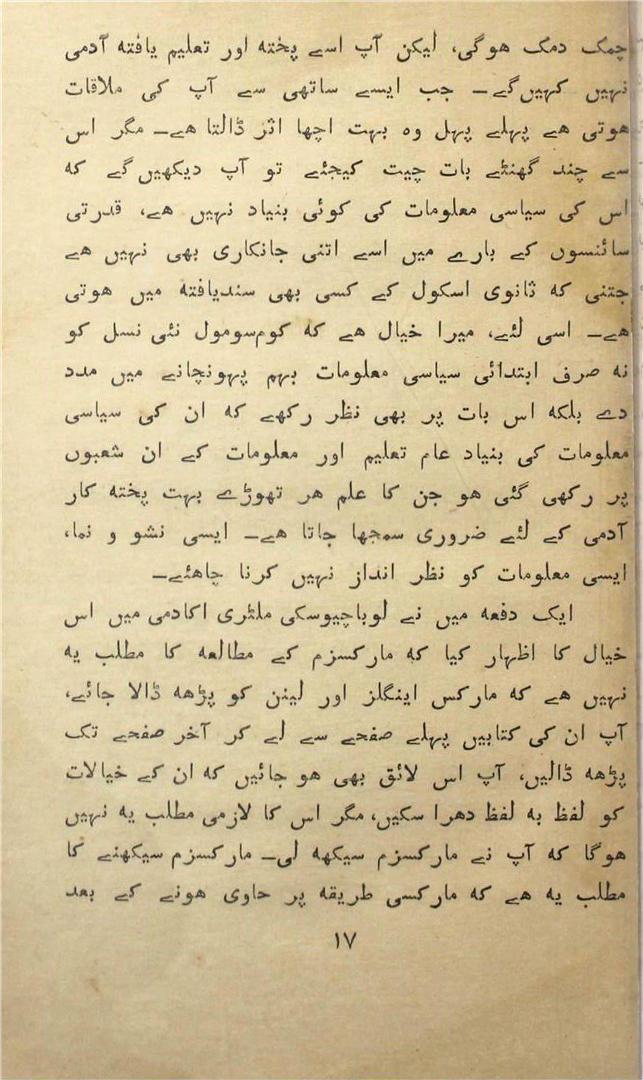 چمک دمک هوگی، لیکن آپ اسے پخته اور تعلیم یافته آدمی
نہیں کہیں گے ۔ جب ایسے ساتھی سے آپ کی ملاقات
هوتی هے پہلے پہل وہ بہت اچھا اثر ڈالتا هے۔ مگر اس
سے چند گھنٹے بات چیت کیجئے تو آپ دیکھیں گے که
اس کی سیاسی معلومات کی کوئی بنیاد نہیں هے، قدرتی
سائنسوں کے بارے میں اسے اتنی جانکاری بھی نہیں هے
جتنی که ثانوی اسکول کے کسی بھی سندیافته میں هوتی
هے۔ اسی لئے، میرا خیال هے که کوم سومول نئی نسل کو
نه صرف ابتدائی سیاسی معلومات بہم پہونچانے میں مدد
دے بلکه اس بات پر بھی نظر رکھے که ان کی سیاسی
معلومات کی بنیاد عام تعلیم اور معلومات کے ان شعبوں
پر رکھی گئی هو جن کا علم هر تھوڑے بہت پخته کار
آدمی کے لئے ضروری سمجھا جاتا هے۔ ایسی نشو و نما،
ایسی معلومات کو نظر انداز نہیں کرنا چاهئے۔
ایک دفعه میں نے لوباچیوسکی ملٹری اکادمی میں اس
خیال کا اظہار کیا که مارکسزم کے مطالعه کا مطلب یه
نہیں هے که مارکس اینگلز اور لینن کو پڑھ ڈالا جائے،
آپ ان کی کتابیں پہلے صفحے سے لے کر آخر صفحے تک
پڑھ ڈالیں، آپ اس لائق بھی هو جائیں که ان کے خیالات
کو لفظ به لفظ دهرا سکیں، مگر اس کا لازمی مطلب یه نہیں
هوگا که آپ نے مارکسزم سیکھ لی۔ مارکسزم سیکھنے کا
مطلب یه هے که مارکسی طریقه پر حاوی هونے کے بعد
۱۷